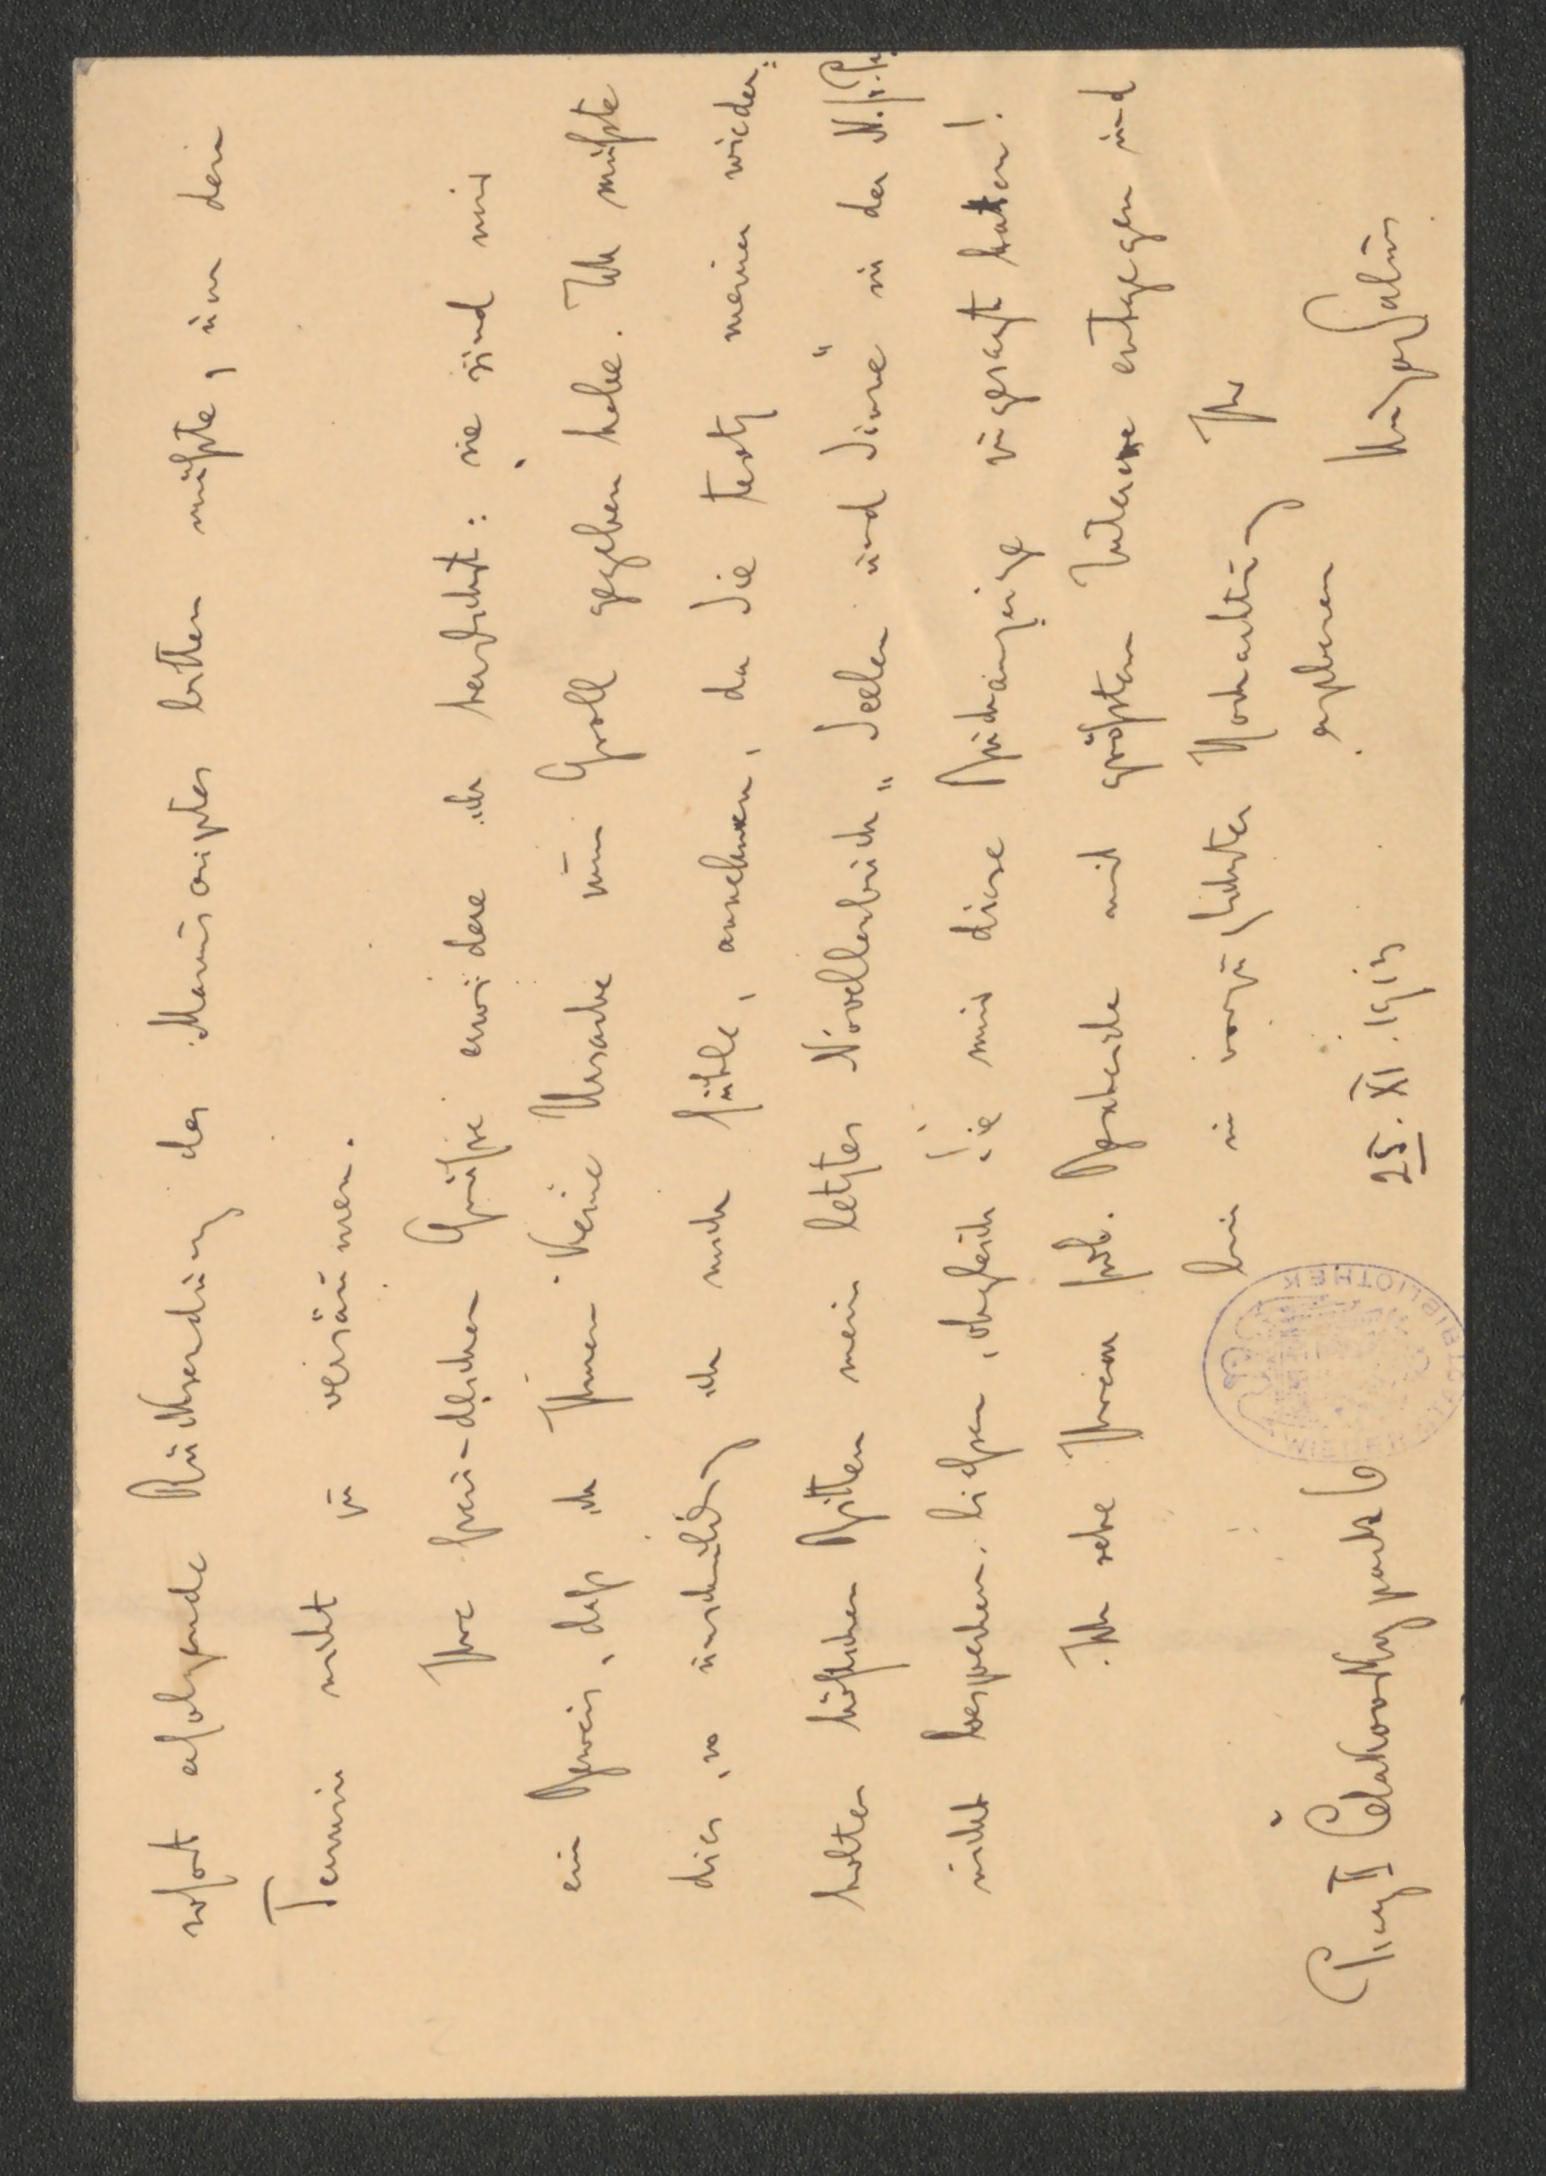 sofort erfolgende Rücksendung des Manuscriptes bitten müßte, um den
Termin nicht zu versäumen.
Ihre freundlichen Grüße erwidere ich herzlichst: sie sind mir
ein Beweis, daß ich Ihnen keine Ursache zum Groll gegeben habe. Ich müßte
dies, so unschuldig ich mich fühle, annehmen, da Sie trotz meiner wieder=
holten höflichen Bitten mein letztes Novellenbuch „Seelen und Sinne" in der N.fr.Pr.
nicht besprechen ließen, obgleich Sie mir diese Buchanzeige zugesagt hatten!
Ich sehe Ihrem frdl. Bescheide mit größtem Interesse entgegen und
bin in vorzüglichster Hochachtung Ihr
ergebener
Hugo Salus
Prag II Čelakovskypark 6
25. XI. 1913
WIENER STADTBIBLIOTHEK